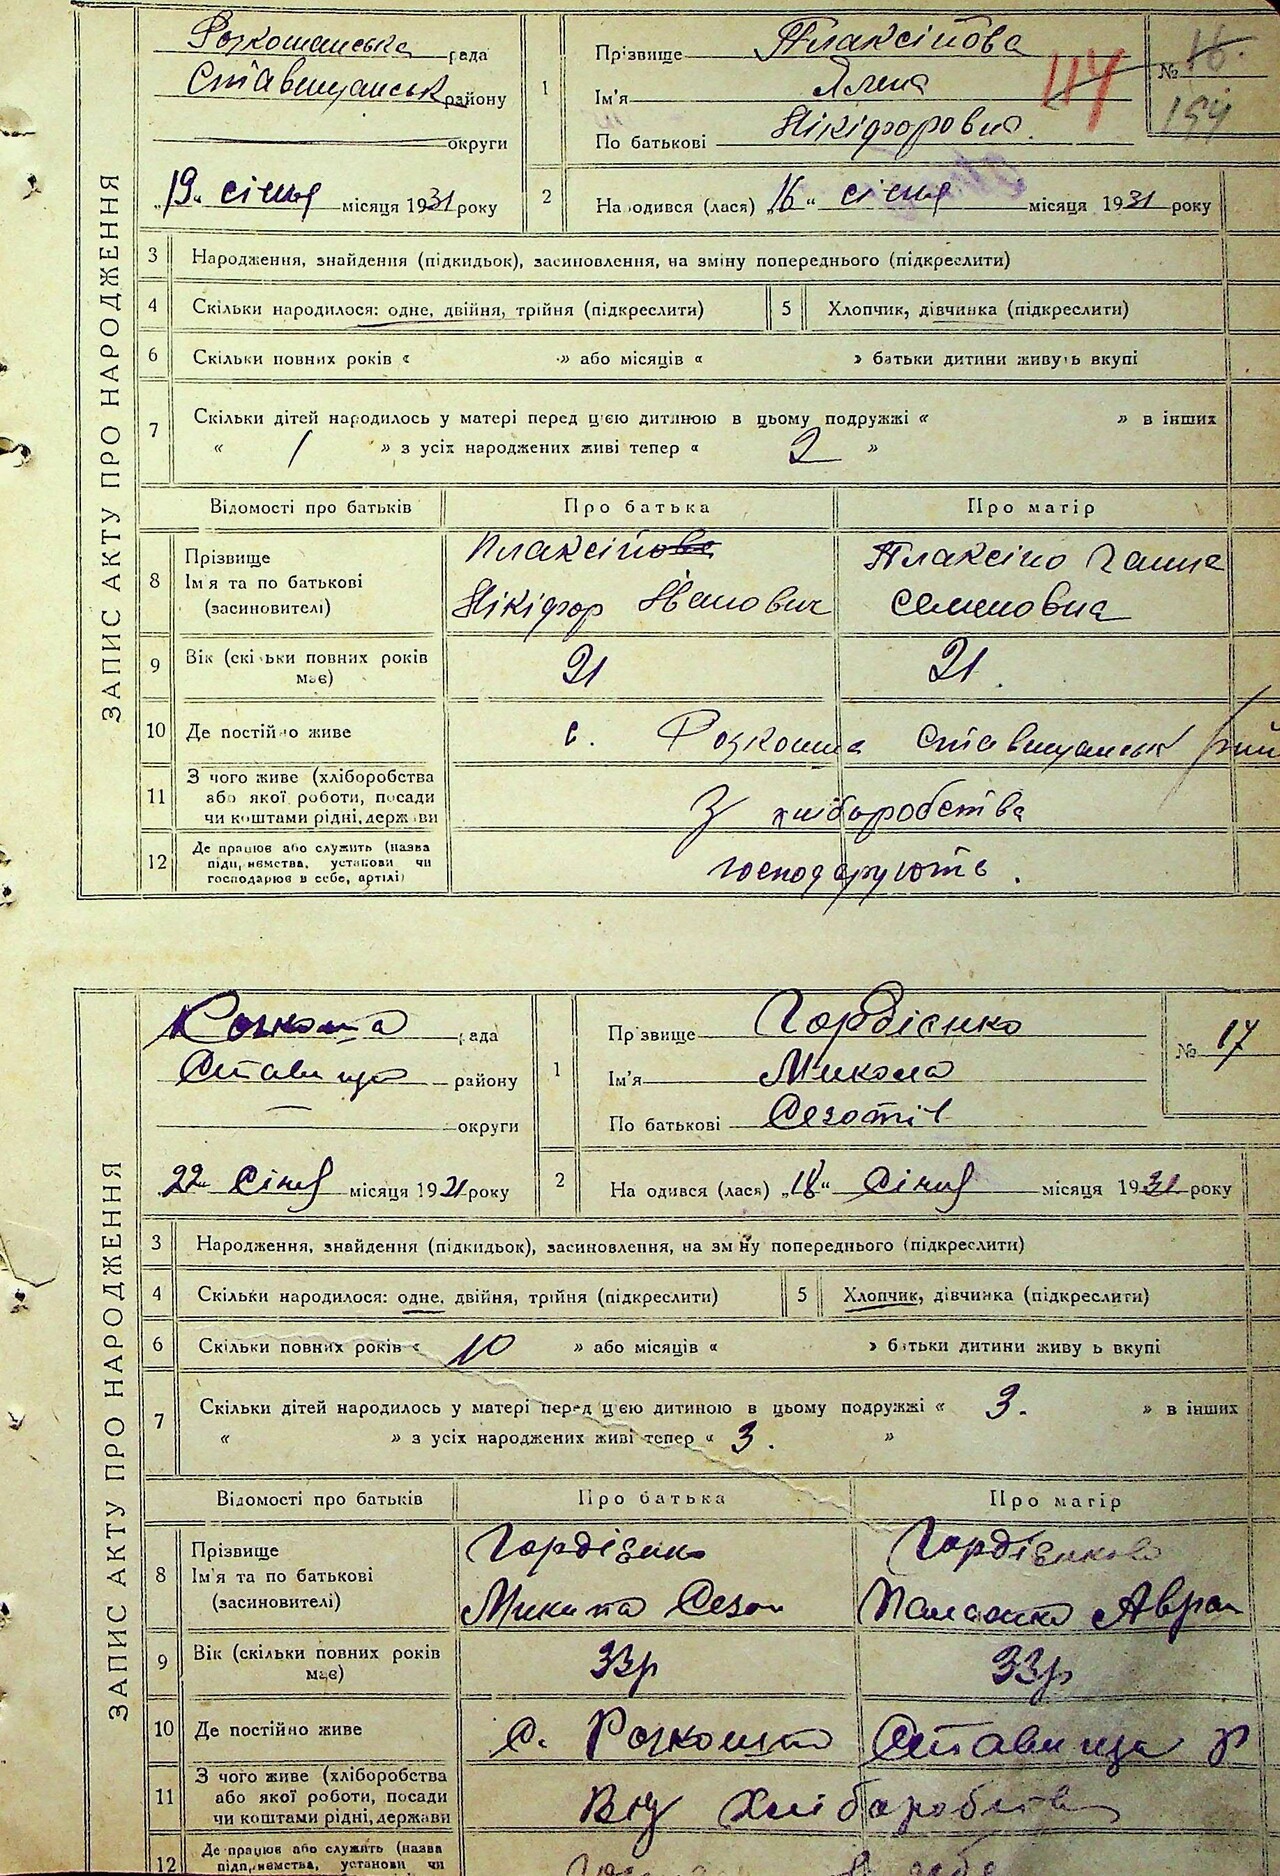 ЗАПИС АКТУ ПРО НАРОДЖЕННЯ
Розкошанська рада
Ставищанськ району
округи
„19“ січня місяця 1931 року
1
Прізвище Плаксівова
Ім'я
По батькові Нікіфоровна.
114
№ 16.
194
2
На одився (лася) „16“ січня місяця 1931 року
3 Народження, знайдення (підкидьок), засиновлення, на зміну попереднього (підкреслити)
4 Скільки народилося: одне, двійня, трійня (підкреслити)
5 Хлопчик, дівчинка (підкреслити)
6 Скільки повних років « » або місяців « » батьки дитини живуть вкупі
7 Скільки дітей народилось у матері перед ц'єю дитиною в цьому подружжі « » в інших
« 1 » з усіх народжених живі тепер « 2 »
Відомості про батьків Про батька Про матір
8 Прізвище
Ім'я та по батькові
(засиновителі)
Нікіфор Іванович
Ганна
Семеновна
9 Вік (скільки повних років має) 21 21.
10 Де постійно живе с. Розкошна Ставищанськ
11 З чого живе (хліборобства
або якої роботи, посади
чи коштами рідні, держави
З хліборобства
12 Де працює або служить (назва
підприємства, установи чи
господарює в себе, артілі)
господарують.
ЗАПИС АКТУ ПРО НАРОДЖЕННЯ
Розкошна рада
Ставища району
округи
22“ Січня місяця 1931 року
1
Прізвище Гордієнко
Ім'я Микола
По батькові
№ 17
2
На одився (лася) „18“ Січня місяця 1931 року
3 Народження, знайдення (підкидьок), засиновлення, на зміну попереднього (підкреслити)
4 Скільки народилося: одне, двійня, трійня (підкреслити)
5 Хлопчик, дівчинка (підкреслити)
6 Скільки повних років « 10 » або місяців « » батьки дитини живу ь вкупі
7 Скільки дітей народилось у матері перед ц'єю дитиною в цьому подружжі « 3. » в інших
« » з усіх народжених живі тепер « 3. »
Відомості про батьків Про батька Про матір
8 Прізвище
Ім'я та по батькові
(засиновителі)
Гордієнко
Микита
Гордієнкова
Аврам
9 Вік (скільки повних років має) 33р 33р
10 Де постійно живе с. Розкошна Ставища р
11 З чого живе (хліборобства
або якої роботи, посади
чи коштами рідні, держави
Від Хліборобства
12 Де працює або служить (назва
підприємства, установи чи
себе